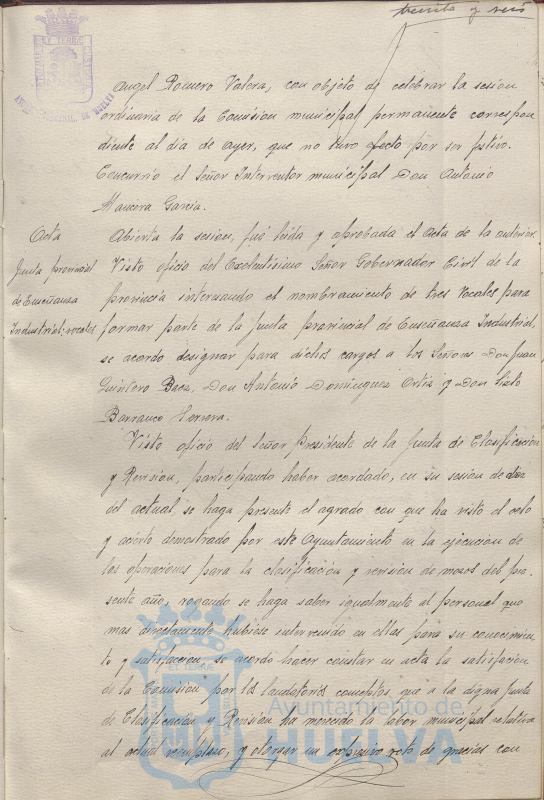 treinta y seis
Angel Romero Valera, con objeto de celebrar la sesión
ordinaria de la Comision municipal permanente correspon
diente al dia de ayer, que no tuvo efecto por ser festivo.
Concurrió el Señor Interventor municipal Don Antonio
Mancera Garcia.
Acta
Abierta la sesion, fué leida y aprobada el acta de la anterior.
Junta provincial
de Enseñanza
Industrial: vocales
Visto oficio del Excelentisimo Señor Gobernador Civil de la
provincia interesando el nombramiento de tres vocales para
formar parte de la Junta Provincial de Enseñanza Industrial,
se acordo designar para dichos cargos a los Señores Don Juan
Quintero Baez, Don Antonio Dominguez Ortiz y Don Sixto
Barranco Herrera.
Visto oficio del Señor Presidente de la Junta de Clasificacion
y Revision, participando haber acordado, en su sesion de diez
del actual, se haga presente el agrado con que ha visto el celo
y acierto demostrado por este Ayuntamiento en la ejecucion de
las operaciones para la clasificacion y revision de mozos del pre-
sente año, rogando se haga saber igualmente al personal que
mas directamente hubiese intervenido en ellas para su conocimien
to y satisfaccion, se acordo hacer constar en acta la satisfacion
de la Comision por los laudatorios conceptos que a la digna Junta
de Clasificacion y Revision ha merecido la labor municipal relativa
al actual reemplazo, y otorgar un expresivo voto de gracias con
EL TERRE
Ayuntamiento de
HUELVA